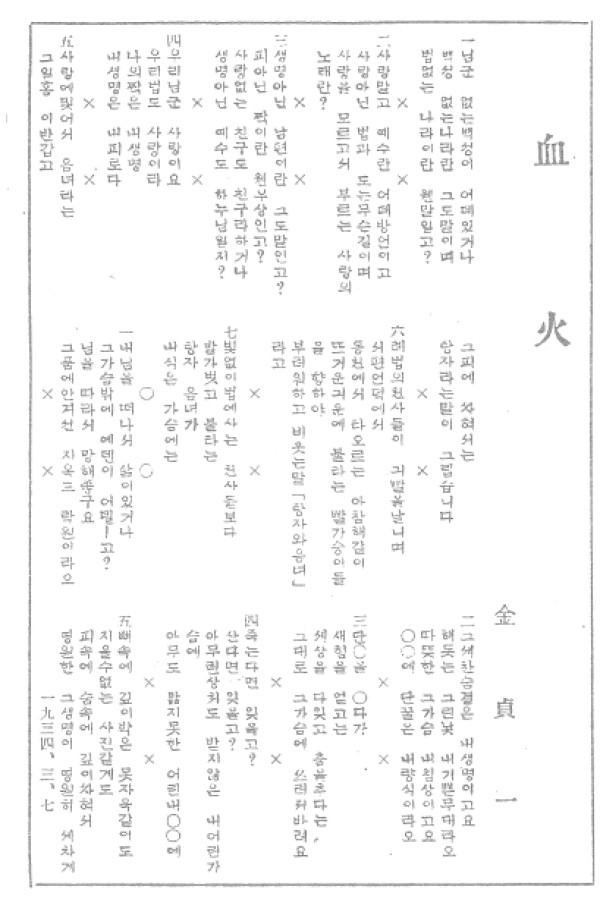 血火
金貞一
一 님군 없는백성이 어데있거나
백성 없는나라란 그도말이며
법없는 나라이란 웬말일고?
× ×
二 사랑말고 예수란 어데방언이고
사랑아닌 법과 도는무슨길이며
사랑을 모르고서 부르는 사랑의
노래란?
× ×
三 생명아닌 남편이란 그도말인고?
피아닌 짝이란 원부상인고?
사랑없는 친구도 친구라하거나
생명아닌 예수도 하누님일지?
× ×
四 우리님군 사랑이요
우리법도 사랑이라
나의짝은 내생명
내생명은 내피로다
× ×
五 사랑에맞어서 음녀라는
그일홈 이반갑고
그피에 차혀서는
탕자라는말이 그립습니다
× ×
六 례법의천사들이 긔빨을날니며
서편언덕에서
동천에서 타오르는 아참해같이
뜨거운긔운에 불타는 빨가숭이들
을 향하야
부러워하고 비웃는말「탕자와음녀」
라고
× ×
七 빛없이법에사는 천사돌보다
발가벗고 불타는
탕자 음녀가
내식은 가슴에는
○ ○
一 내님을 떠나서 삶이있거나
그가슴밖에 에덴이 어델ㅣ고?
님을 따라서 망해
그품에안겨선 지옥도 락원이라으
× ×
二 그세찬숨결은 내생명이고요
해돗는 그린낯 내기쁜무대라오
따뜻한 그가슴 내침상이고요
○○에 단꿀은 내량식이라오
× ×
三 단○을 ○다가
새힘을 얻고는
세상을 다잊고 춤을추다는,
그대로 그가슴에 쓰러저바려요
× ×
四 죽는다면 잊을고?
산다면 잊을고?
아무런상처도 받지않은 내어린가
슴에
아무도 밟지못한 어린내○○에
× ×
五 뼈속에 깊이박은 못자욱같이도
지울수없는 사진같게도
피속에 숨속에 깊이차혀서
영원한 그생명이 영원히 세차게
一九三四、三、七